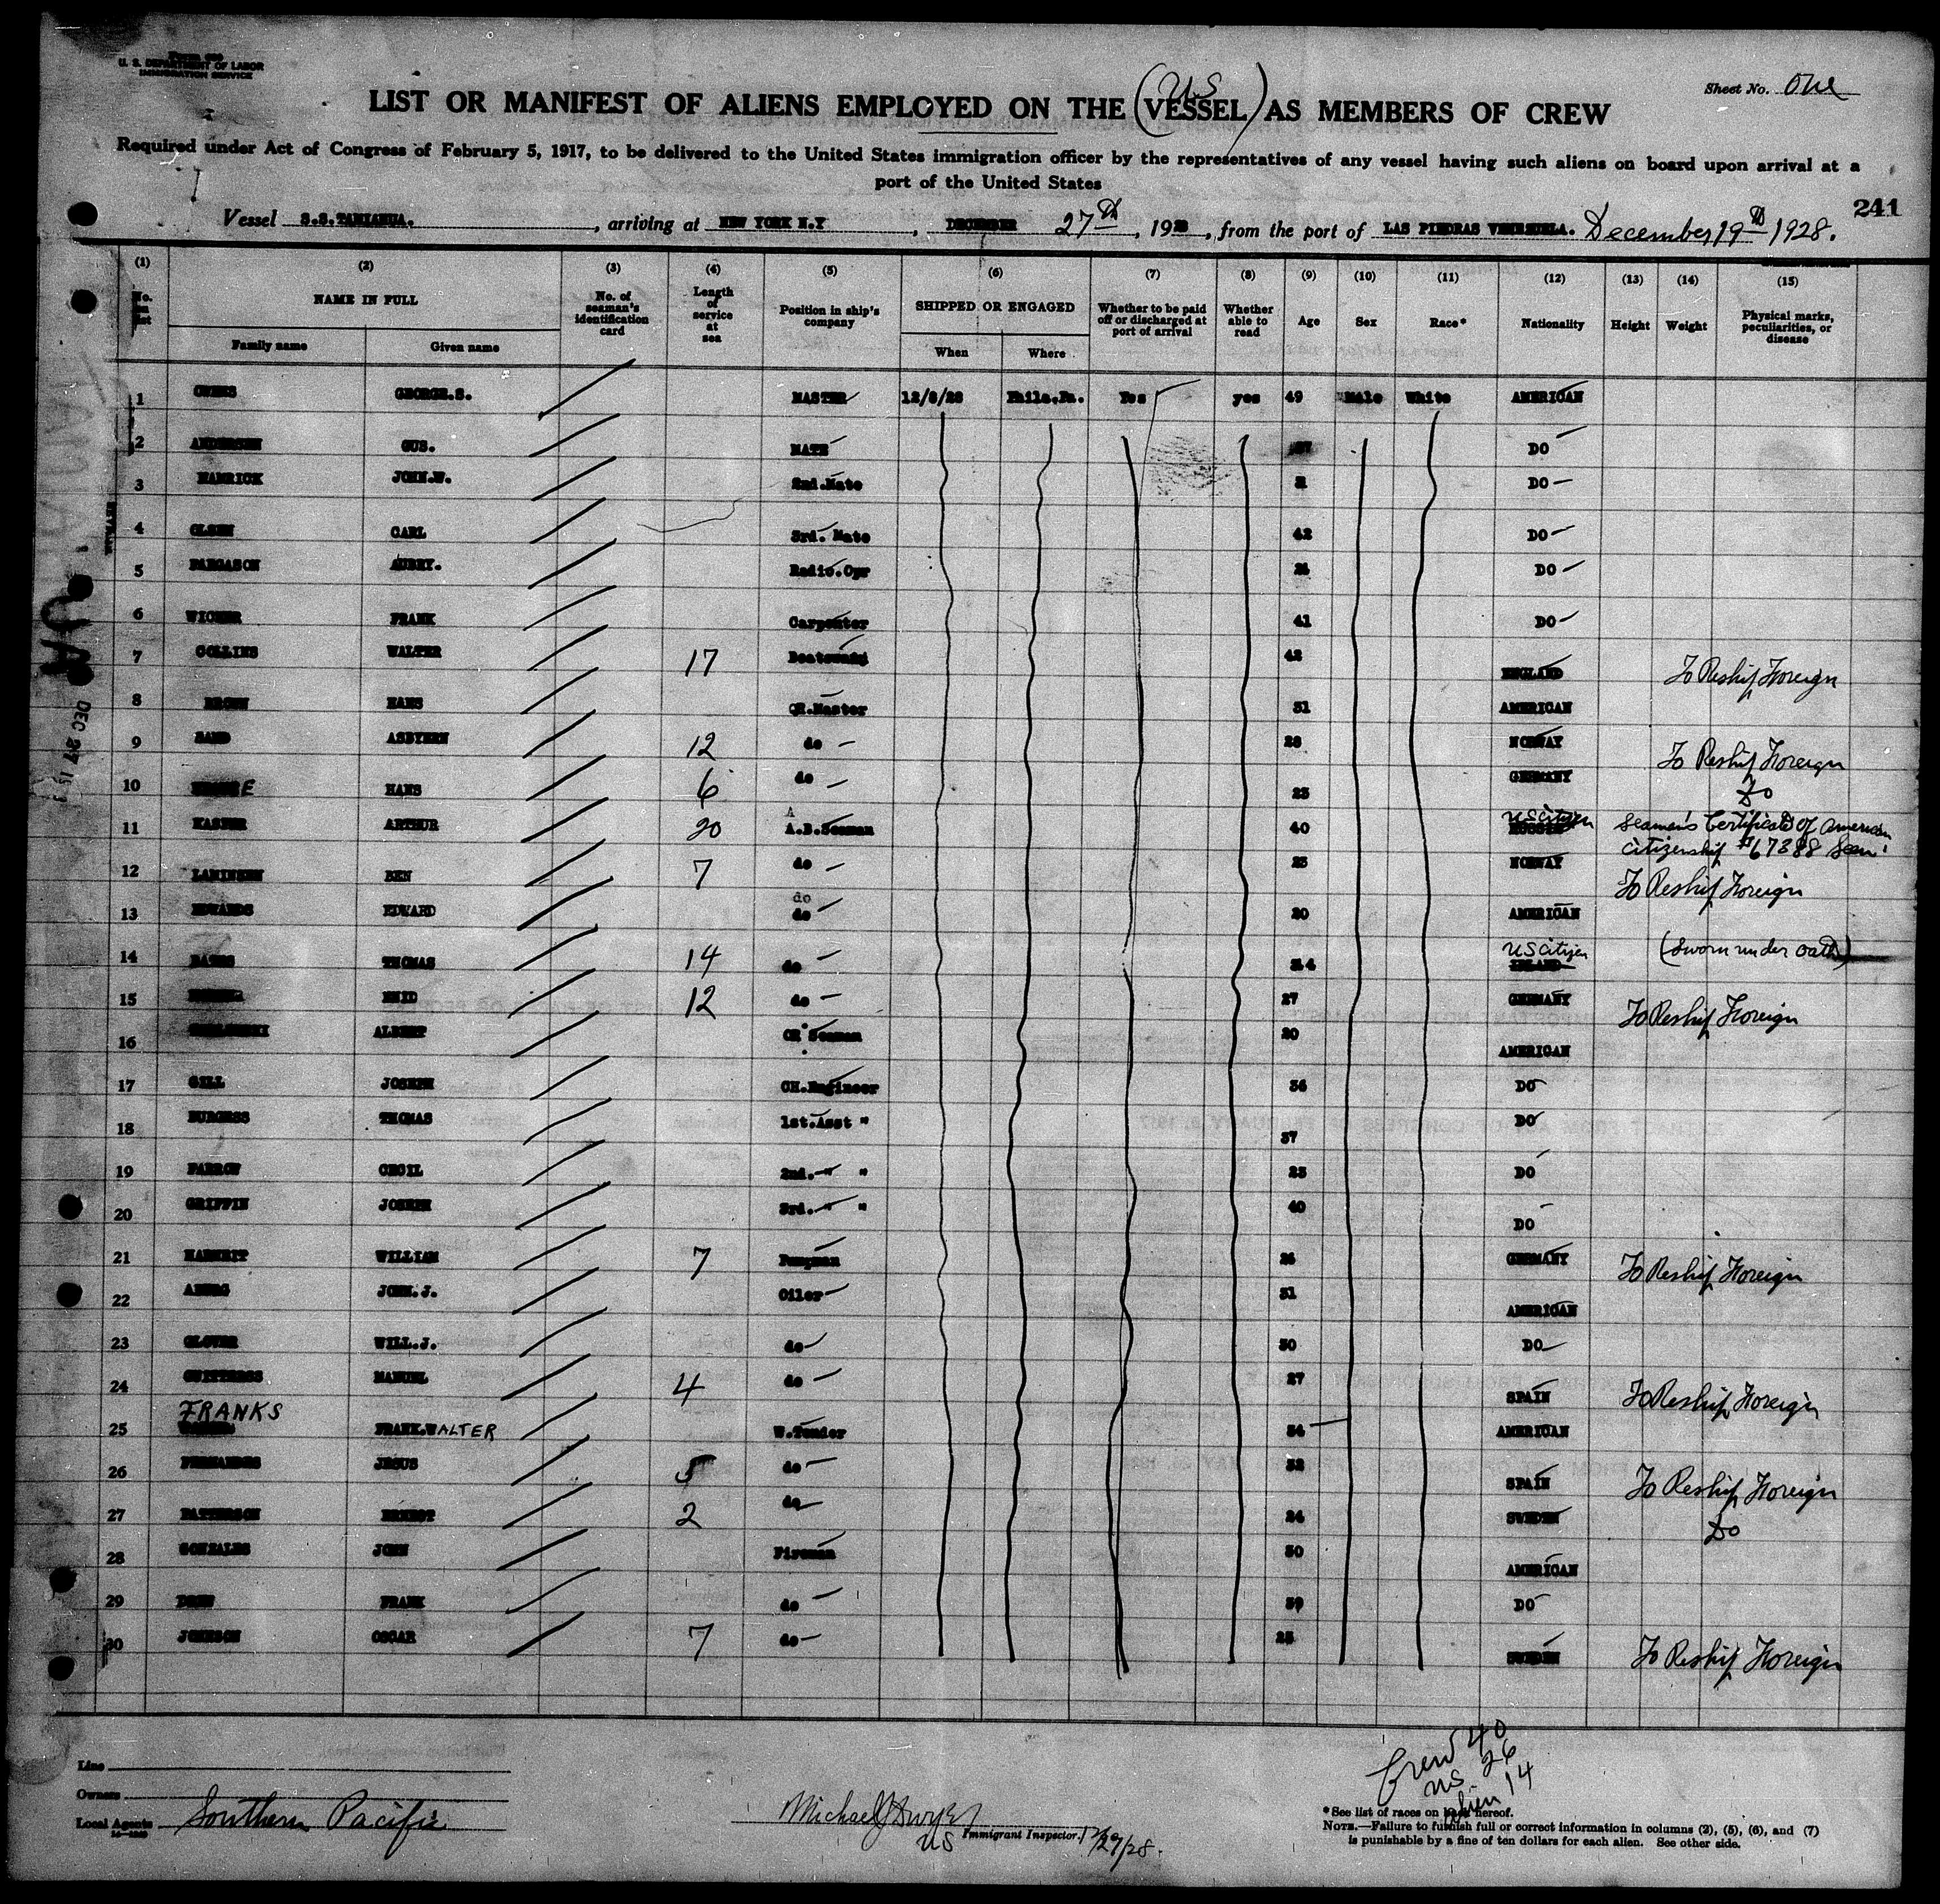 Form 689
U. S. DEPARTMENT OF LABOR
IMMIGRATION SERVICE
Sheet No. One
U.S
LIST OR MANIFEST OF ALIENS EMPLOYED ON THE (VESSEL) AS MEMBERS OF CREW
Required under Act of Congress of February 5, 1917, to be delivered to the United States immigration officer by the representatives of any vessel having such aliens on board upon arrival at a
port of the United States
241
Vessel S.S.TAMIAHUA. , arriving at NEW YORK N.Y , DECEMBER 27th , 1928 , from the port of LAS PIEDRAS VENEZUELA. December 19th 1928.
(1) (2) (3) (4) (5) (6) (7) (8) (9) (10) (11) (12) (13) (14) (15)
No. on list NAME IN FULL Family name Given name No. of seaman's identification card Length of service at sea Position in ship's company SHIPPED OR ENGAGED When Where Whether to be paid off or discharged at port of arrival Whether able to read Age Sex Race* Nationality Height Weight Physical marks, peculiarities, or disease
1 GEORGE.S. MASTER 12/8/28 Phila.Pa. Yes yes 49 Male White AMERICAN
2 ANDERSEN GUS. MATE DO
3 HAMRICK JOHN.W. 2nd.Mate DO
4 OLSEN CARL 3rd. Mate 42 DO
5 PARGASON AUBRY. Radio.Opr DO
6 FRANK Carpenter 41 DO
7 COLLINS WALTER 17 Boatswain 42 ENGLAND To Reship Foreign
8 HANS QR.Master 31 AMERICAN
9 SAND ASBYERN 12 do 28 NORWAY To Reship Foreign
10 HANS 6 do 23 GERMANY Do
11 ARTHUR 20 A.B.Seaman 40 US citizen Seamen's Certificate of American citizenship #67388 seen
12 BEN 7 do 23 NORWAY To Reship Foreign
13 EDWARDS EDWARD do do 20 AMERICAN
14 BATES THOMAS 14 do US citizen (sworn under oath)
15 12 do 27 GERMANY To Reship Foreign
16 ALBERT Seaman 20 AMERICAN
17 GILL JOSEPH CH.Engineer 36 DO
18 BURGESS THOMAS 1st.Asst " 37 DO
19 FARROW CECIL 2nd. " " 23 DO
20 GRIFFIN JOSEPH 3rd. " " 40 DO
21 WILLIAM 7 Pumpman GERMANY To Reship Foreign
22 JOHN.J. Oiler 31 AMERICAN
23 GLOVER WILL.J. do 30 DO
24 MANUEL 4 do 27 SPAIN To Reship Foreign
25 FRANKS FRANK.WALTER W.Tender 34 AMERICAN
26 FERNANDES JESUS 5 do SPAIN To Reship Foreign
27 PATTERSON ERNEST 2 do 24 SWEDEN Do
28 GONZALES JOHN Fireman 30 AMERICAN
29 DREW FRANK do 39 DO
30 JOHNSON OSCAR 7 do SWEDEN To Reship Foreign
DEC 27
Crew 40
US 26
Alien 14
Line
Owners
Local Agents Southern Pacific
Michael J Dwyer
US Immigrant Inspector. 12/27/28.
*See list of races on back hereof.
NOTE.—Failure to furnish full or correct information in columns (2), (5), (6), and (7)
is punishable by a fine of ten dollars for each alien. See other side.